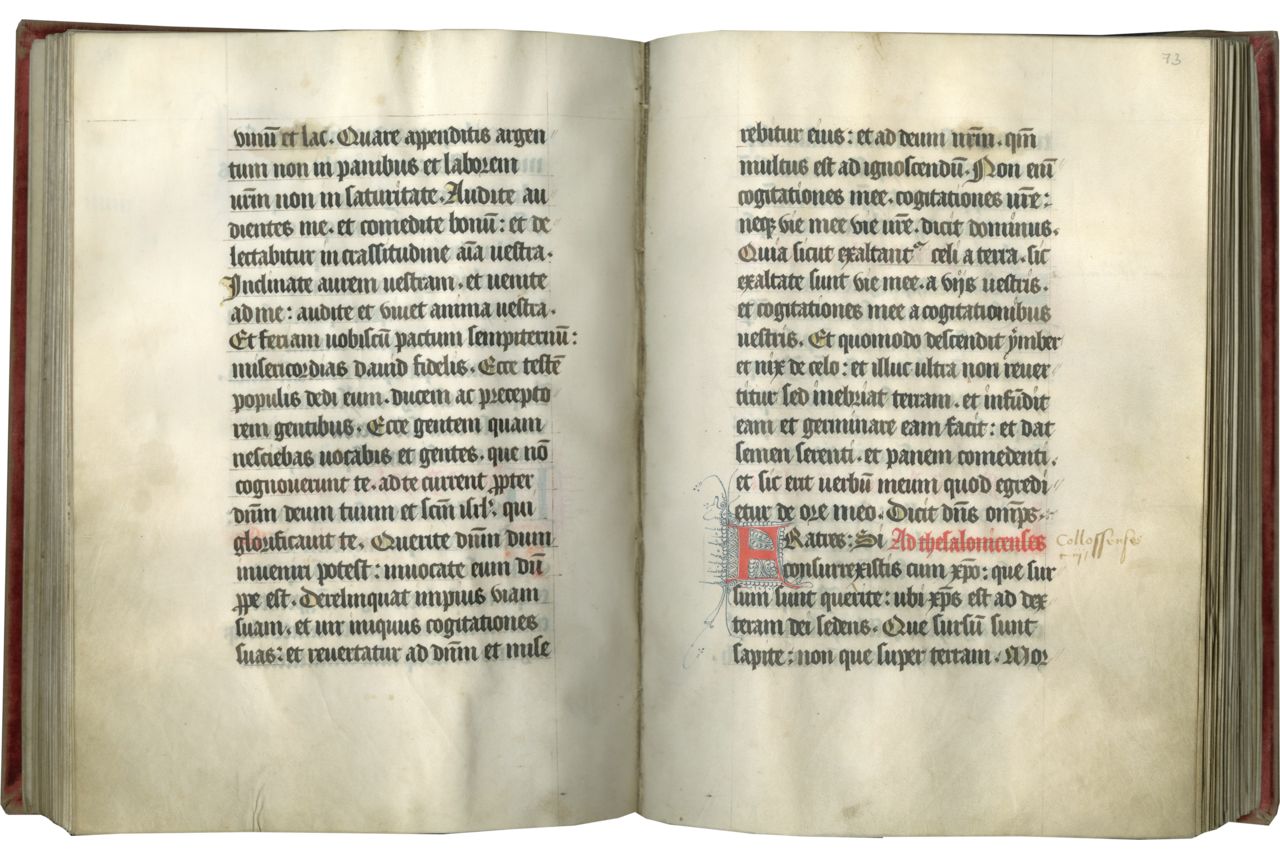 vinū et lac. Quare appenditis argen
tum non in panibus et laborem
urm̄ non in saturitate. Audite au
dientes me. et comedite bonū: et de
lectabitur in crassitudine aīa uestra.
Inclinate aurem uestram. et uenite
ad me: audite et viuet anima uestra.
Et feriam uobiscū pactum sempiternū:
misericordias dauid fidelis. Ecce testē
populis dedi eum. ducem ac precepto
rem gentibus. Ecce gentem quam
nesciebas uocabis et gentes. que nō
cognouerunt te. ad te current ꝓpter
dn̄m deum tuum et scm̄ isrl'. qui
glorificauit te. Querite dn̄m dum
inueniri potest: inuocate eum dū
ꝓpe est. Derelinquat impius viam
suam. et uir iniquus cogitationes
suas: et reuertatur ad dn̄m et mise
73
rebitur eius: et ad deum nrm̄. qm̄
multus est ad ignoscendū. Non enī
cogitationes mee. cogitationes ur̄e:
neqꝫ vie mee vie ur̄e. dicit dominus.
Quia sicut exaltantᷣ celi a terra. sic
exaltate sunt vie mee. a vijs uestris.
et cogitationes mee a cogitationibus
uestris. Et quomodo descendit ymber
et nix de celo: et illuc ultra non reuer
titur sed inebriat terram. et infūdit
eam et germinare eam facit: et dat
semen serenti. et panem comedenti.
et sic erit uerbū meum quod egredi
etur de ore meo. Dicit dn̄s omp̄s.
FRatres: Si Ad thesalonicenses Collossenses
consurrexistis cum xp̄o: que sur
sum sunt querite: ubi xp̄s est ad dex
teram dei sedens. Que sursū sunt
sapite: non que super terram. Mor